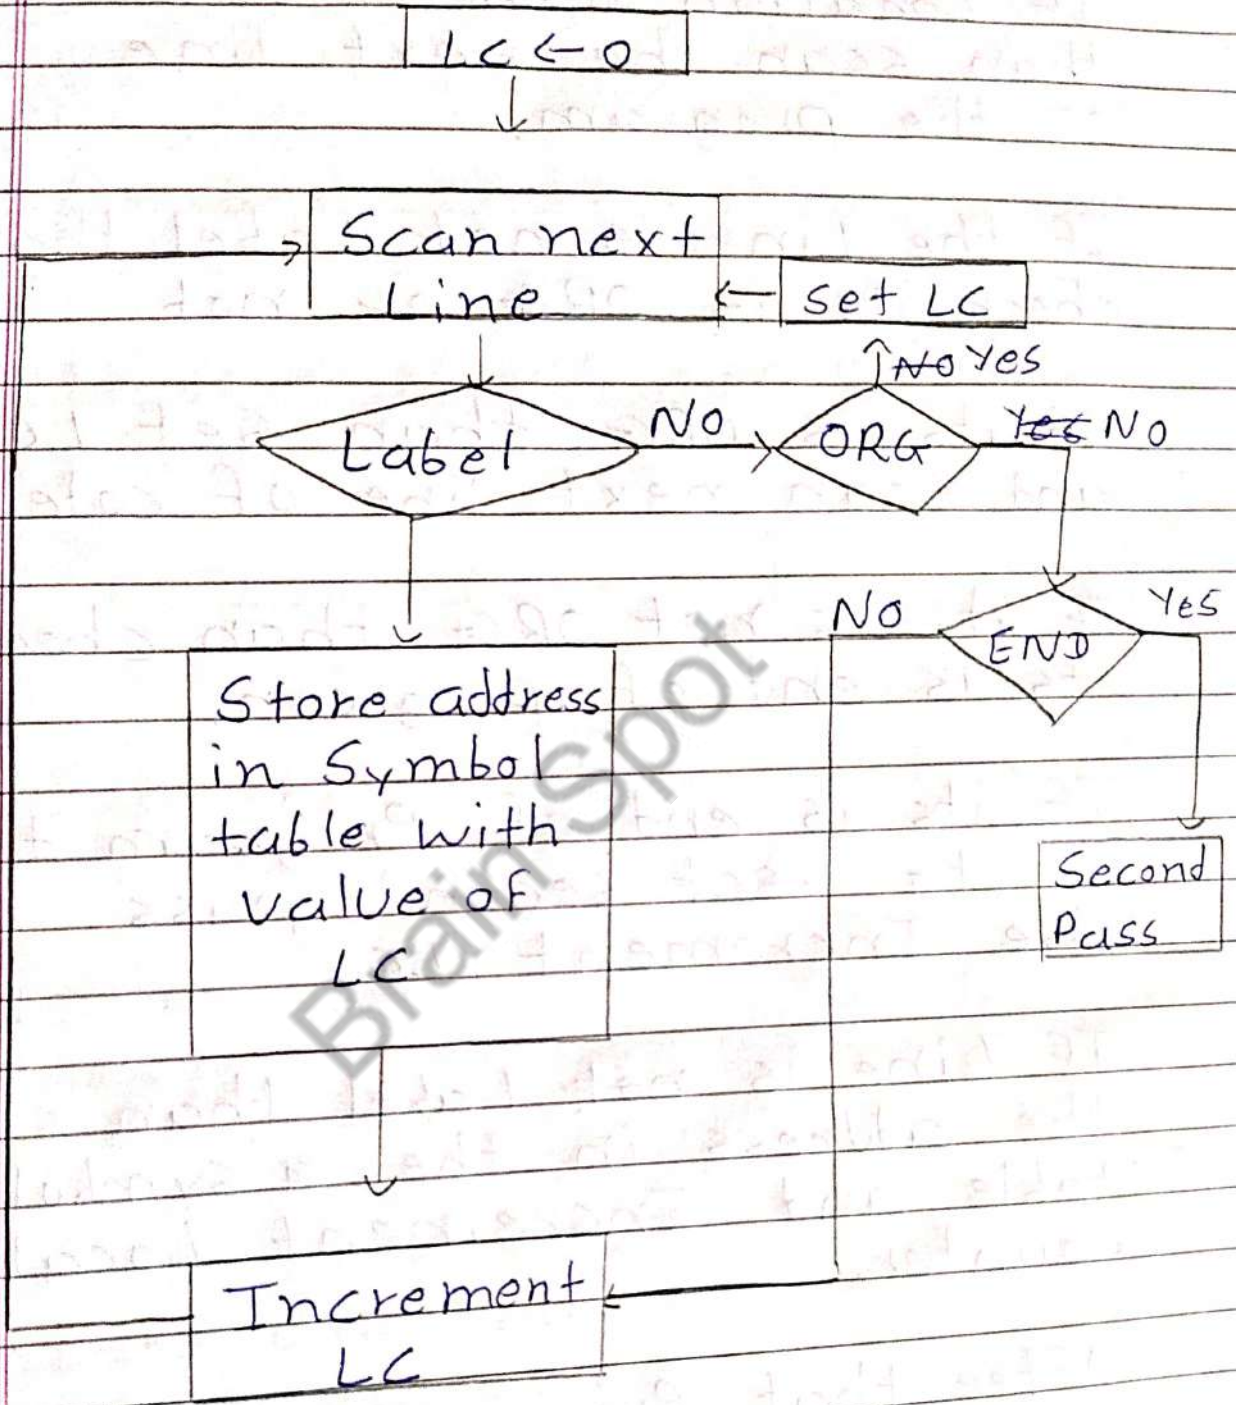 LC ← 0
Scan next
Line
set LC
No Yes
Label
NO
ORG
Yes NO
NO
END
Yes
Store address
in Symbol
table with
value of
LC
Second
Pass
Increment
LC
Brain Spot